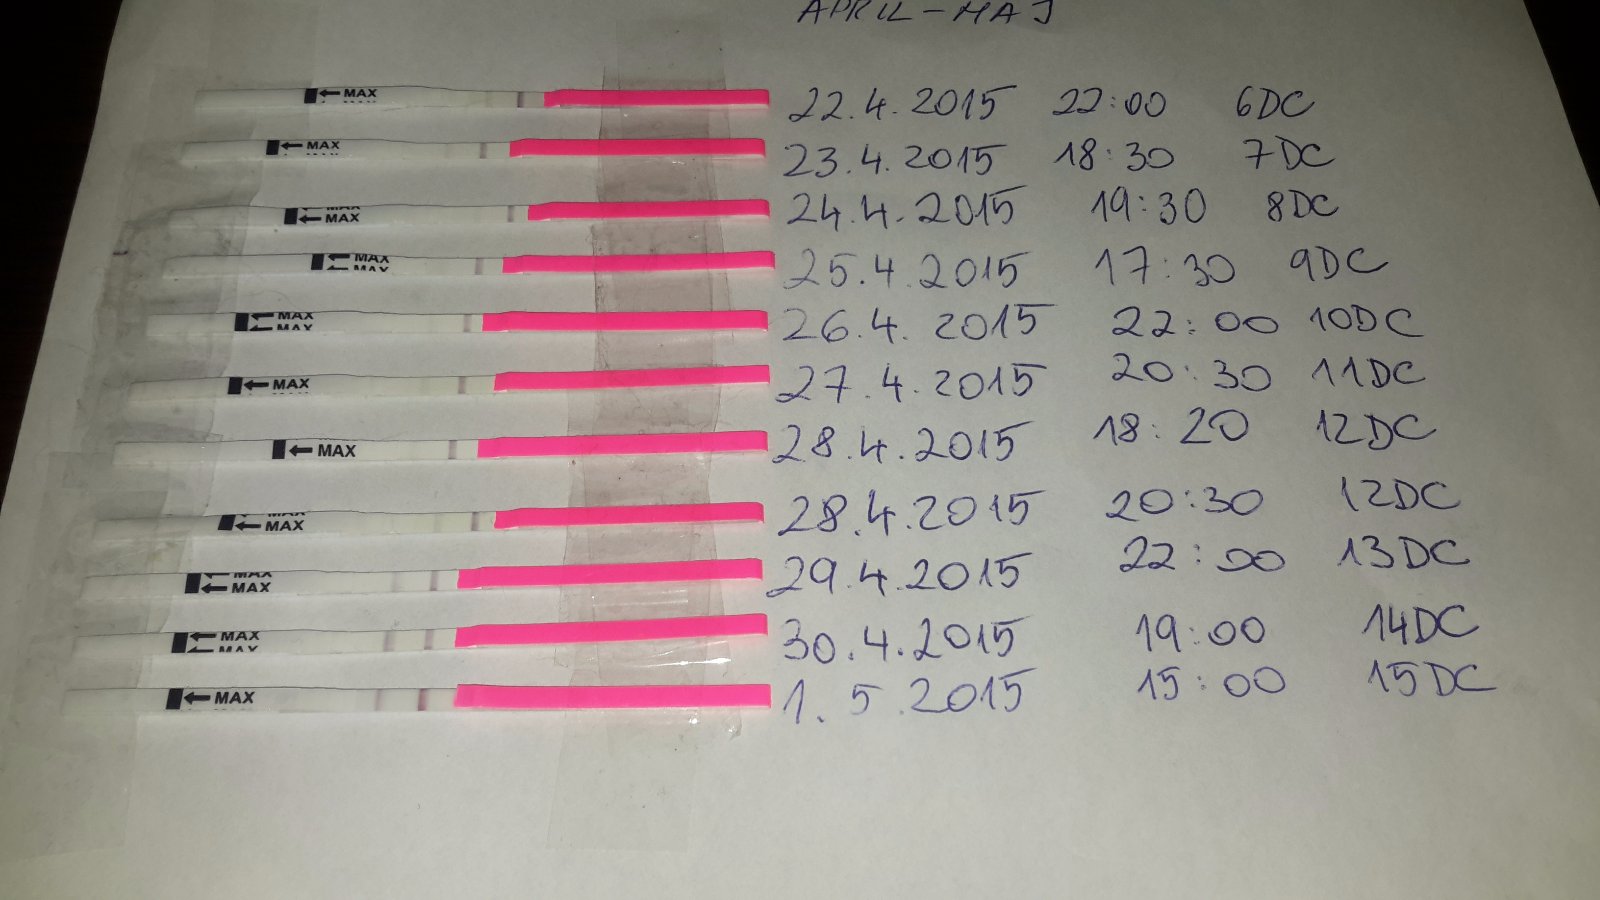 APRIL - MAJ
MAX 22.4.2015 22:00 6DC
MAX 23.4.2015 18:30 7DC
MAX 24.4.2015 19:30 8DC
MAX 25.4.2015 17:30 9DC
MAX 26.4.2015 22:00 10DC
MAX 27.4.2015 20:30 11DC
MAX 28.4.2015 18:20 12DC
MAX 28.4.2015 20:30 12DC
MAX 29.4.2015 22:00 13DC
MAX 30.4.2015 19:00 14DC
MAX 1.5.2015 15:00 15DC